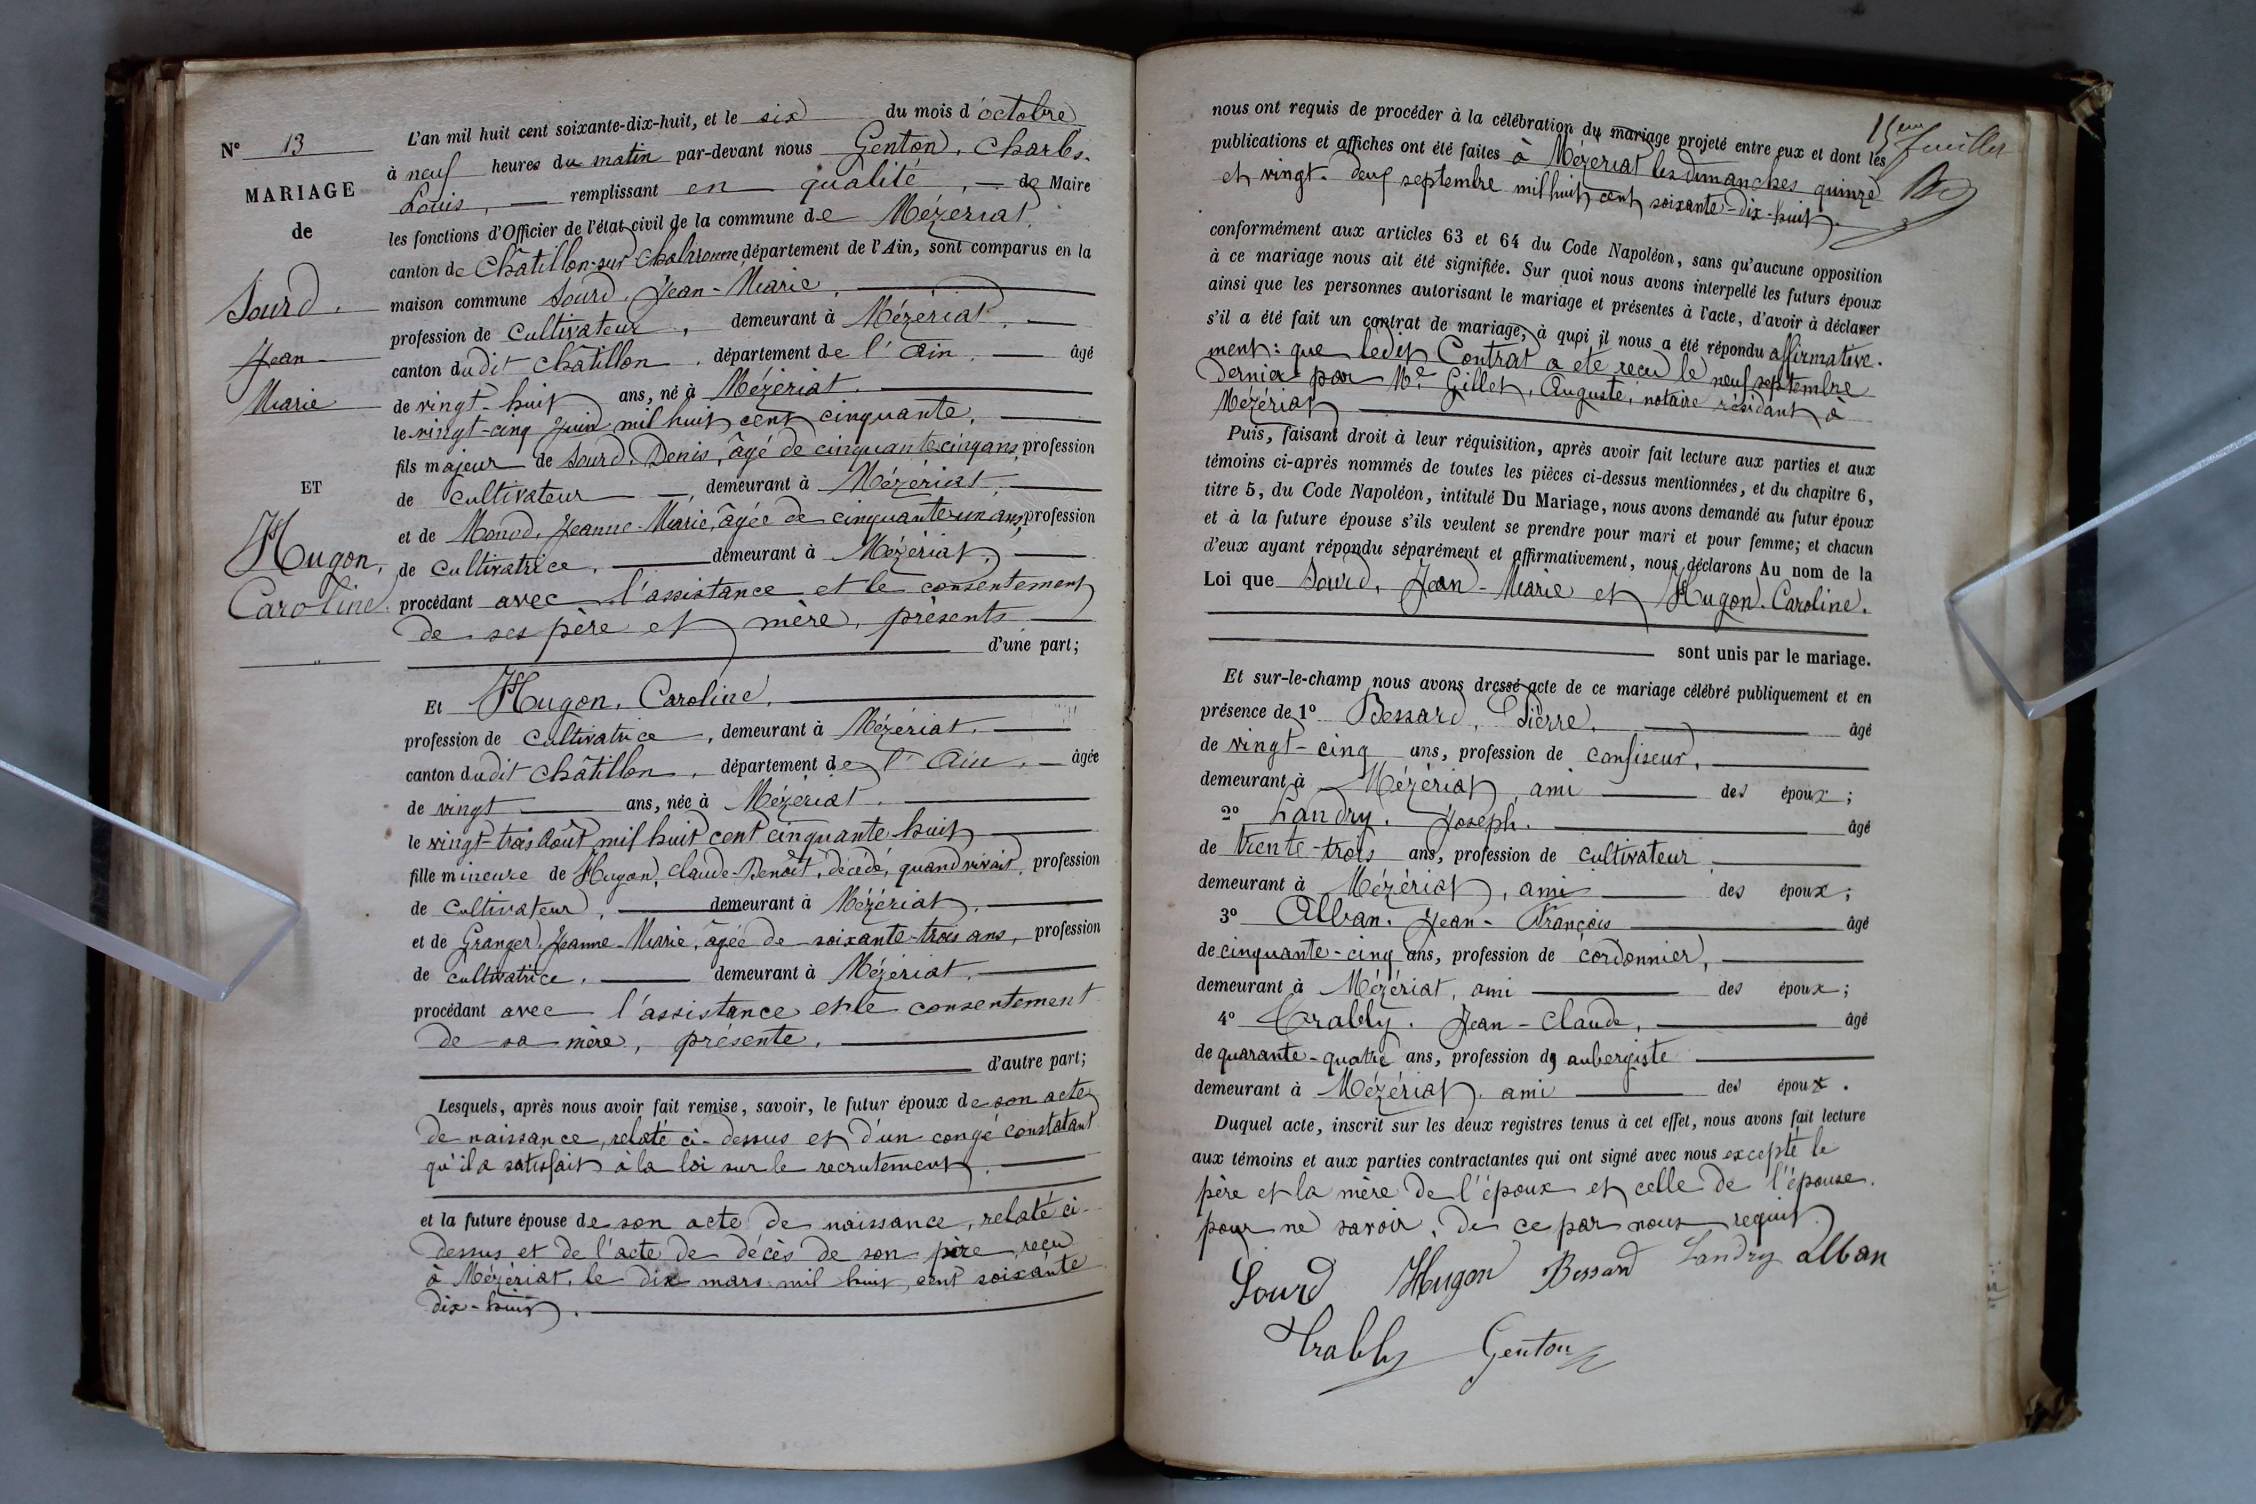 N° 13
MARIAGE
de
Sourd.
Jean
Marie
ET
Hugon,
Caroline.
L'an mil huit cent soixante-dix-huit, et le six du mois d'octobre
à neuf heures du matin par-devant nous Genton, Charles-
Louis, remplissant en qualité, de Maire
les fonctions d'Officier de l'état civil de la commune de Mézériat
canton de Châtillon-sur Chalaronne département de l'Ain, sont comparus en la
maison commune Sourd, Jean-Marie,
profession de cultivateur, demeurant à Mézériat,
canton dudit Châtillon, département de l'Ain, âgé
de vingt-huit ans, né à Mézériat,
le vingt-cinq juin mil huit cent cinquante,
fils majeur de Sourd, Denis, âgé de cinquante cinq ans, profession
de cultivateur, demeurant à Mézériat,
et de Monod, Jeanne-Marie, âgée de cinquante un ans, profession
de cultivatrice, demeurant à Mézériat,
procédant avec l'assistance et le consentement
de ses père et mère, présents
d'une part;
Et Hugon, Caroline,
profession de cultivatrice, demeurant à Mézériat,
canton dudit Châtillon, département de l'Ain, âgée
de vingt ans, née à Mézériat,
le vingt-trois Août mil huit cent cinquante huit
fille mineure de Hugon, Claude-Benoît, décédé, quand vivait, profession
de cultivateur, demeurant à Mézériat,
et de Granger, Jeanne-Marie, âgée de soixante-trois ans, profession
de cultivatrice, demeurant à Mézériat,
procédant avec l'assistance et le consentement
de sa mère, présente,
d'autre part;
Lesquels, après nous avoir fait remise, savoir, le futur époux de son acte
de naissance, relaté ci-dessus et d'un congé constatant
qu'il a satisfait à la loi sur le recrutement.
et la future épouse de son acte de naissance, relaté ci-
dessus et de l'acte de décès de son père, reçu
à Mézériat, le dix mars mil huit cent soixante
dix-huit.
15eme feuillet
nous ont requis de procéder à la célébration du mariage projeté entre eux et dont les
publications et affiches ont été faites à Mézériat les dimanches quinze
et vingt-deux septembre mil huit cent soixante-dix-huit.
conformément aux articles 63 et 64 du Code Napoléon, sans qu'aucune opposition
à ce mariage nous ait été signifiée. Sur quoi nous avons interpellé les futurs époux
ainsi que les personnes autorisant le mariage et présentes à l'acte, d'avoir à déclarer
s'il a été fait un contrat de mariage, à quoi il nous a été répondu affirmative-
ment: que ledit Contrat a été reçu le neuf septembre
dernier par Me Gillet, Auguste, notaire résidant à
Mézériat
Puis, faisant droit à leur réquisition, après avoir fait lecture aux parties et aux
témoins ci-après nommés de toutes les pièces ci-dessus mentionnées, et du chapitre 6,
titre 5, du Code Napoléon, intitulé Du Mariage, nous avons demandé au futur époux
et à la future épouse s'ils veulent se prendre pour mari et pour femme; et chacun
d'eux ayant répondu séparément et affirmativement, nous déclarons Au nom de la
Loi que Sourd, Jean-Marie et Hugon, Caroline.
sont unis par le mariage.
Et sur-le-champ nous avons dressé acte de ce mariage célébré publiquement et en
présence de 1° Bessard, Pierre, âgé
de vingt-cinq ans, profession de confiseur,
demeurant à Mézériat, ami des époux;
2° Landry, Joseph, âgé
de trente-trois ans, profession de cultivateur
demeurant à Mézériat, ami des époux;
3° Alban, Jean-François âgé
de cinquante-cinq ans, profession de cordonnier,
demeurant à Mézériat, ami des époux;
4° Trably, Jean-Claude, âgé
de quarante-quatre ans, profession d'aubergiste
demeurant à Mézériat, ami des époux.
Duquel acte, inscrit sur les deux registres tenus à cet effet, nous avons fait lecture
aux témoins et aux parties contractantes qui ont signé avec nous excepté le
père et la mère de l'époux et celle de l'épouse,
pour ne savoir, de ce par nous requis.
Sourd Hugon Bessard Landry alban
Trably Genton